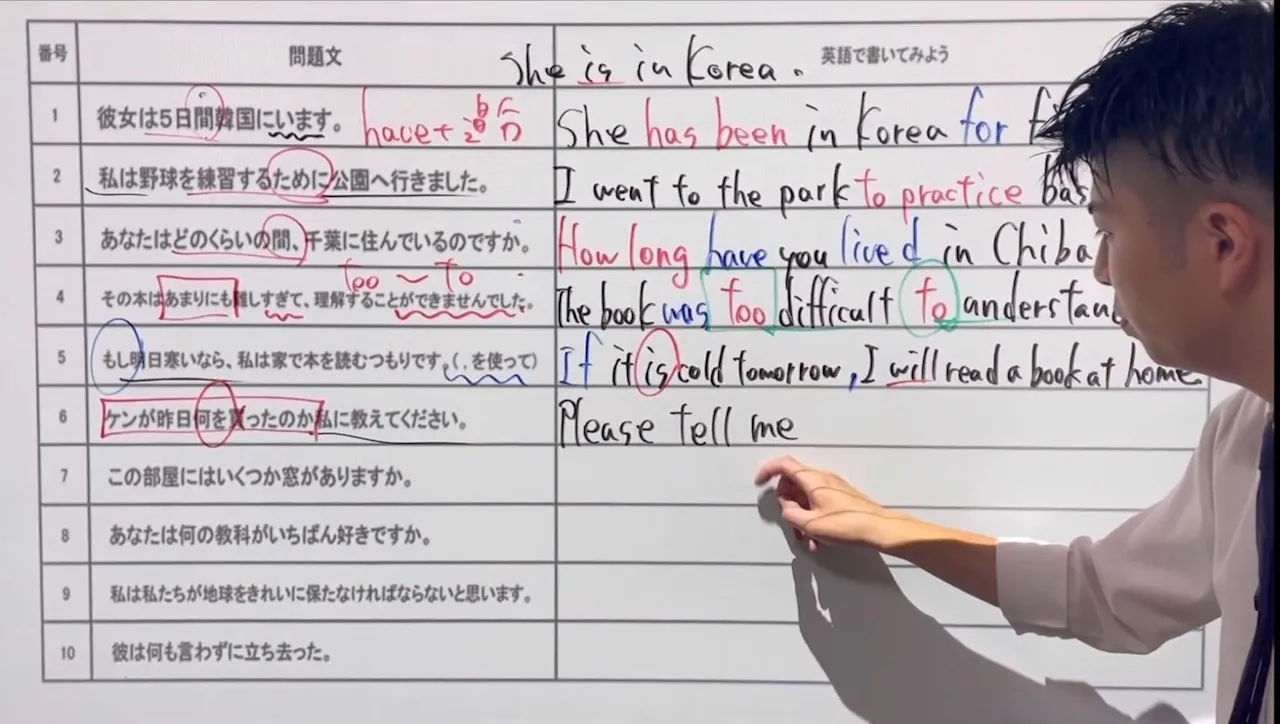 番号 問題文 英語で書いてみよう
She is in Korea.
1 彼女は5日間韓国にいます。 have+過去分 She has been in Korea for
2 私は野球を練習するために公園へ行きました。 I went to the park to practice
3 あなたはどのくらいの間、千葉に住んでいるのですか。 How long have you lived in Chiba
too ~ to
4 その本はあまりにも難しすぎて、理解することができませんでした。 The book was too difficult to anderstan
5 もし明日寒いなら、私は家で本を読むつもりです。(,を使って) If it is cold tomorrow, I will read a book at home.
6 ケンが昨日何を買ったのか私に教えてください。 Please tell me
7 この部屋にはいくつか窓がありますか。
8 あなたは何の教科がいちばん好きですか。
9 私は私たちが地球をきれいに保たなければならないと思います。
10 彼は何も言わずに立ち去った。